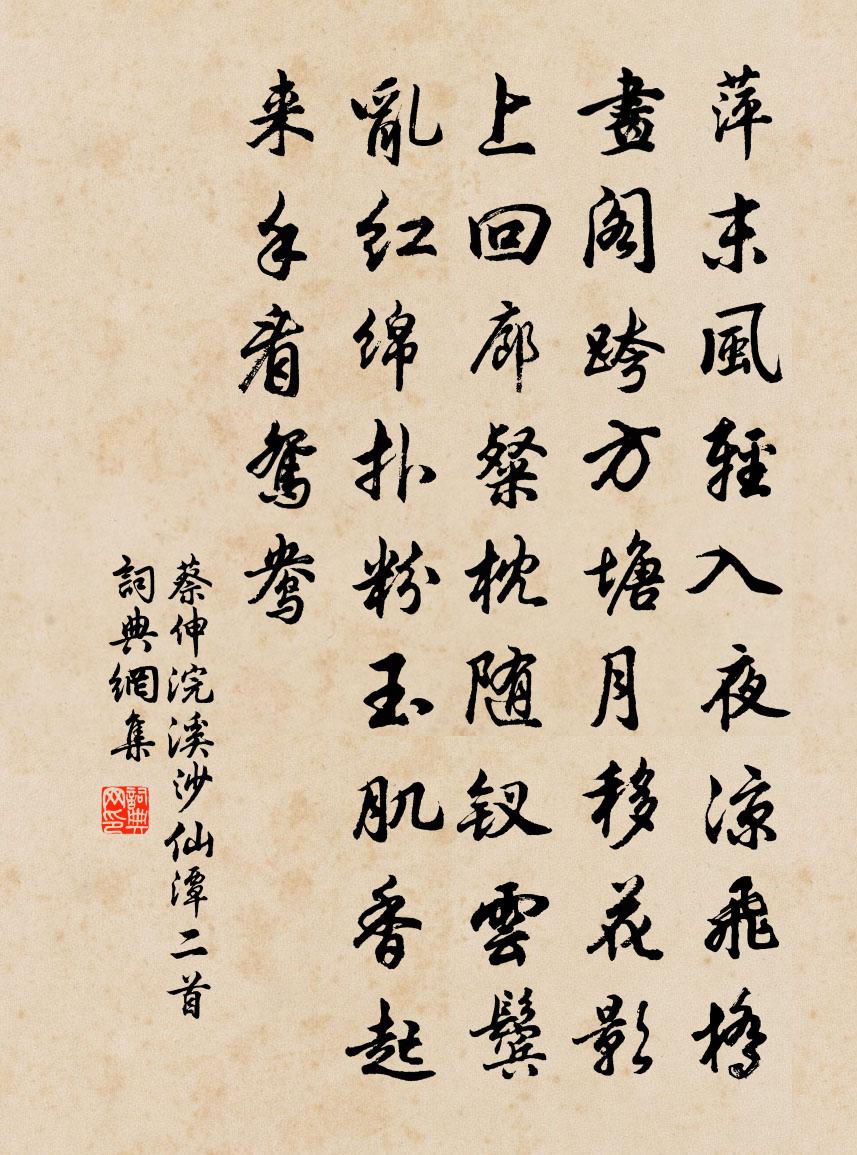 萍末風輕入夜涼飛橋
畫閣跨方塘月移花影
上回廊粲枕随钗雲鬢
亂红绵扑粉玉肌香起
来手看鴛鴦
蔡伸浣溪沙仙潭二首
詞典網集
詞典网印